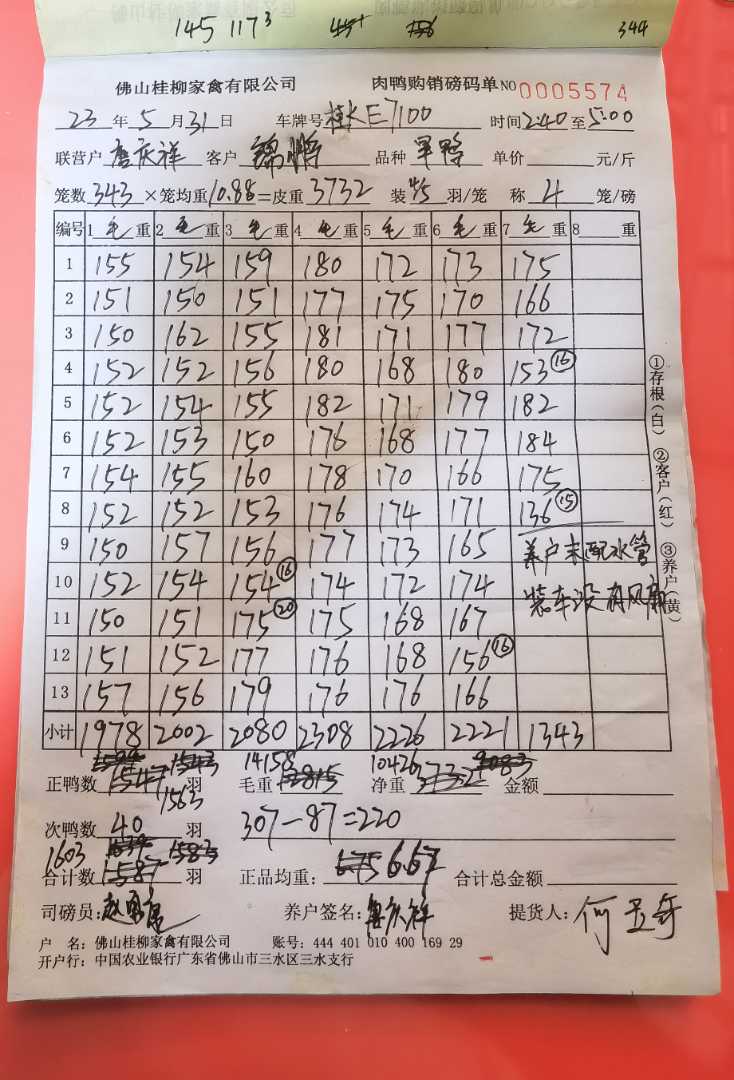 145 117³ 344
佛山桂柳家禽有限公司 肉鸭购销磅码单 NO 0005574
23 年 5 月 31 日 车牌号 桂KE7100 时间 2:40 至 5:00
联营户 唐庆祥 客户 锦鹏 品种 单鸭 单价 元/斤
笼数 343 ×笼均重 10.88 =皮重 3732 装 4/5 羽/笼 称 4 笼/磅
编号 1 毛 重 2 毛 重 3 毛 重 4 毛 重 5 毛 重 6 毛 重 7 毛 重 8 重
1 155 154 159 180 172 173 175
2 151 150 151 177 175 170 166
3 150 162 155 181 171 177 172
4 152 152 156 180 168 180 153 ⑯
5 152 154 155 182 171 179 182
6 152 153 150 176 168 177 184
7 154 155 160 178 170 166 175
8 152 152 153 176 174 171 136 ⑮
9 150 157 156 177 173 165 养户未配水管
10 152 154 154 ⑯ 174 172 174 装车没有风扇
11 150 151 175 ⑳ 175 168 167
12 151 152 177 176 168 156 ⑯
13 157 156 179 176 176 166
小计 1978 2002 2080 2308 2226 2221 1343
①存根(白) ②客户(红) ③养户(黄)
14158 10426
正鸭数 1547 1543 羽 毛重 12815 净重 3732 9083 金额
1563
次鸭数 40 羽 307-87=220
1603 1583
合计数 1587 羽 正品均重: 6.67 合计总金额
司磅员: 养户签名: 唐庆祥 提货人: 何
户 名: 佛山桂柳家禽有限公司 账号: 444 401 010 400 169 29
开户行: 中国农业银行广东省佛山市三水区三水支行